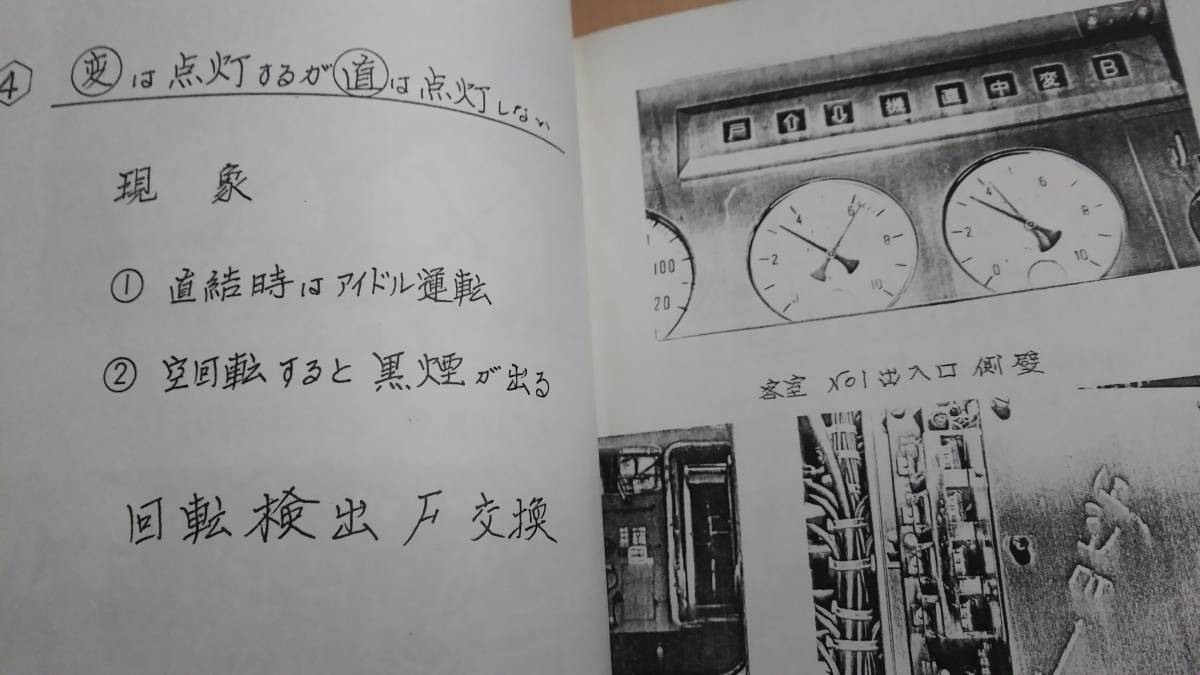 ④ 変は点灯するが直は点灯しない
現象
① 直結時はアイドル運転
② 空回転すると黒煙が出る
回転検出 F 交換
戸 ⇧ ⇩ 機 直 中 変 B
100
20
0 2 4 6 8 10
0 2 4 6 8 10
客室 No1出入口側壁